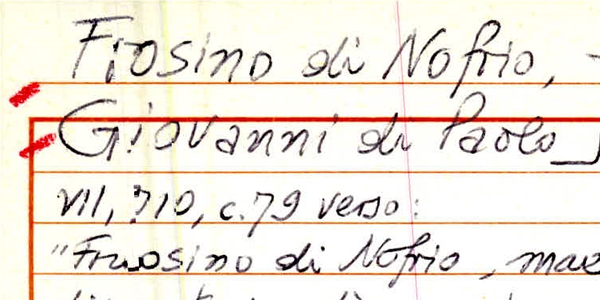 Fiosino di Nofrio, -
Giovanni di Paolo
VII, 710, c. 79 verso:
"Fruosino di Nofrio, mae